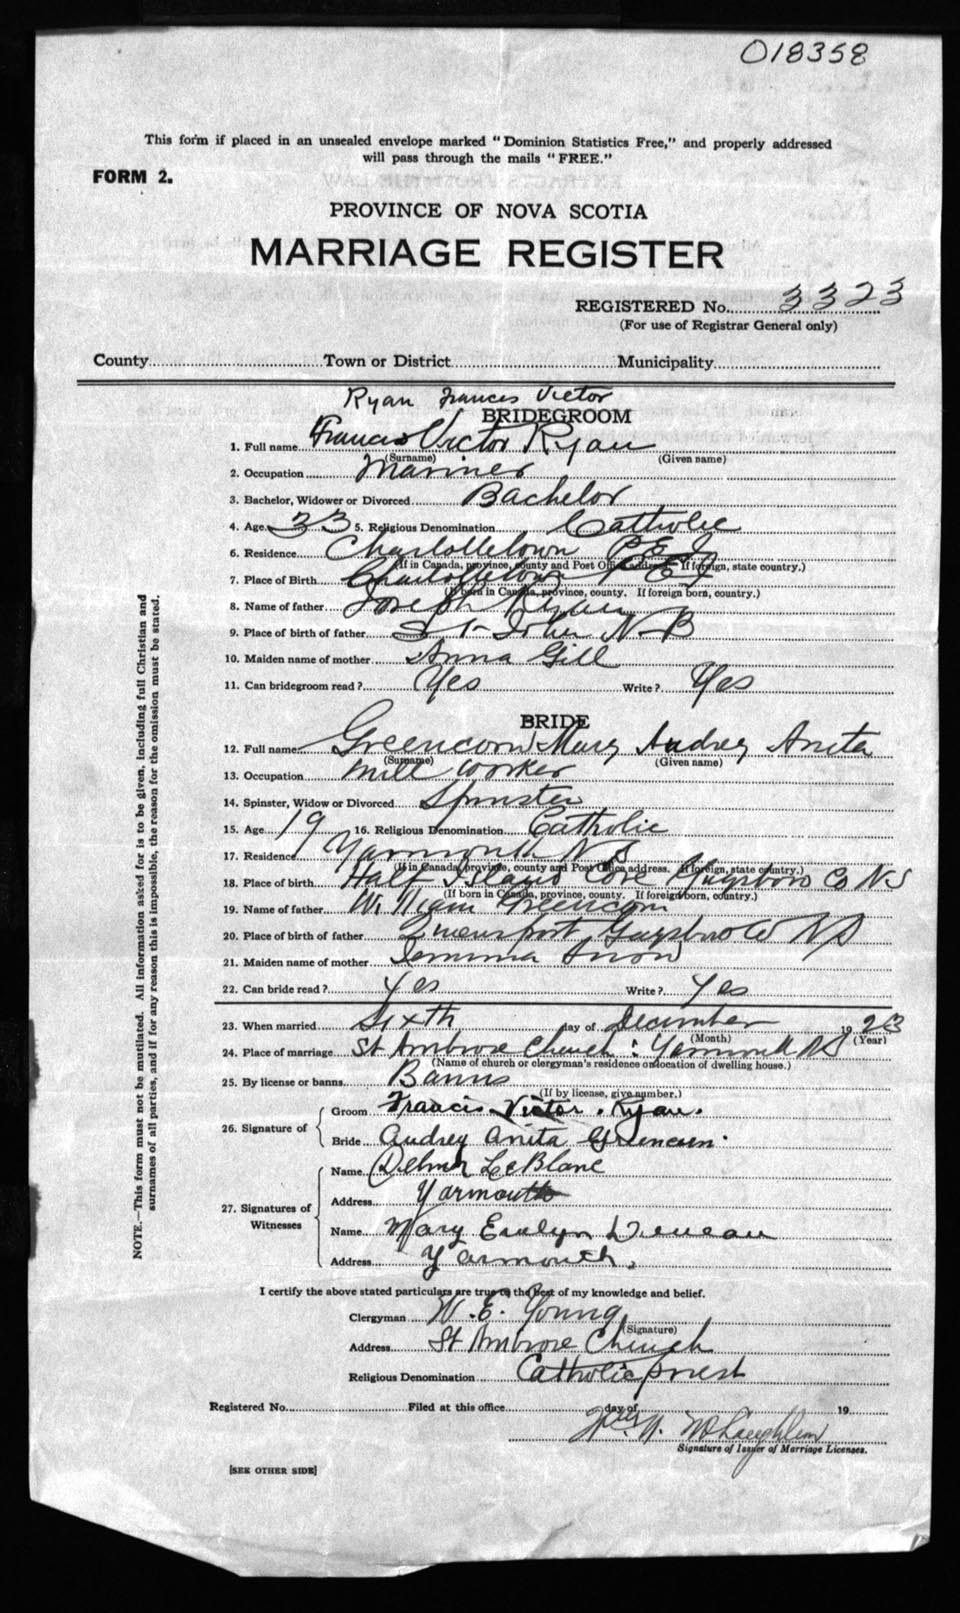 018358
This form if placed in an unsealed envelope marked "Dominion Statistics Free," and properly addressed
will pass through the mails "FREE."
FORM 2.
PROVINCE OF NOVA SCOTIA
MARRIAGE REGISTER
REGISTERED No. 3323
(For use of Registrar General only)
County Town or District Municipality
Ryan Frances Victor
BRIDEGROOM
1. Full name Francis Victor Ryan
(Surname) (Given name)
2. Occupation Mariner
3. Bachelor, Widower or Divorced Bachelor
4. Age 33 5. Religious Denomination Catholic
6. Residence Charlottetown P E I
(If in Canada, province, county and Post Office address. If foreign, state country.)
7. Place of Birth Charlottetown P E I
(If born in Canada, province, county. If foreign born, country.)
8. Name of father Joseph Ryan
9. Place of birth of father St John N B
10. Maiden name of mother Anna Gill
11. Can bridegroom read? Yes Write? Yes
BRIDE
12. Full name Greencorn Mary Audrey Anita
(Surname) (Given name)
13. Occupation Mill worker
14. Spinster, Widow or Divorced Spinster
15. Age 19 16. Religious Denomination Catholic
17. Residence Yarmouth N S
(If in Canada, province, county and Post Office address. If foreign, state country.)
18. Place of birth Half Island Cove Guysboro Co N S
(If born in Canada, province, county. If foreign born, country.)
19. Name of father William Greencorn
20. Place of birth of father Queensport Guysboro Co N S
21. Maiden name of mother Jemima Snow
22. Can bride read? Yes Write? Yes
23. When married Sixth day of December 1923
(Month) (Year)
24. Place of marriage St Ambrose Church : Yarmouth N S
(Name of church or clergyman's residence or location of dwelling house.)
25. By license or banns Banns
(If by license, give number.)
26. Signature of Groom Francis Victor Ryan.
Bride Audrey Anita Greencorn.
27. Signatures of Witnesses Name Delmar LeBlanc
Address Yarmouth
Name Mary Evelyn Deveau
Address Yarmouth,
I certify the above stated particulars are true to the best of my knowledge and belief.
Clergyman W. E. Young
(Signature)
Address St Ambrose Church
Religious Denomination Catholic priest
Registered No. Filed at this office day of 19
McLaughlin
Signature of Issuer of Marriage Licenses.
[SEE OTHER SIDE]
NOTE.—This form must not be mutilated. All information asked for is to be given, including full Christian and
surnames of all parties, and if for any reason this is impossible, the reason for the omission must be stated.